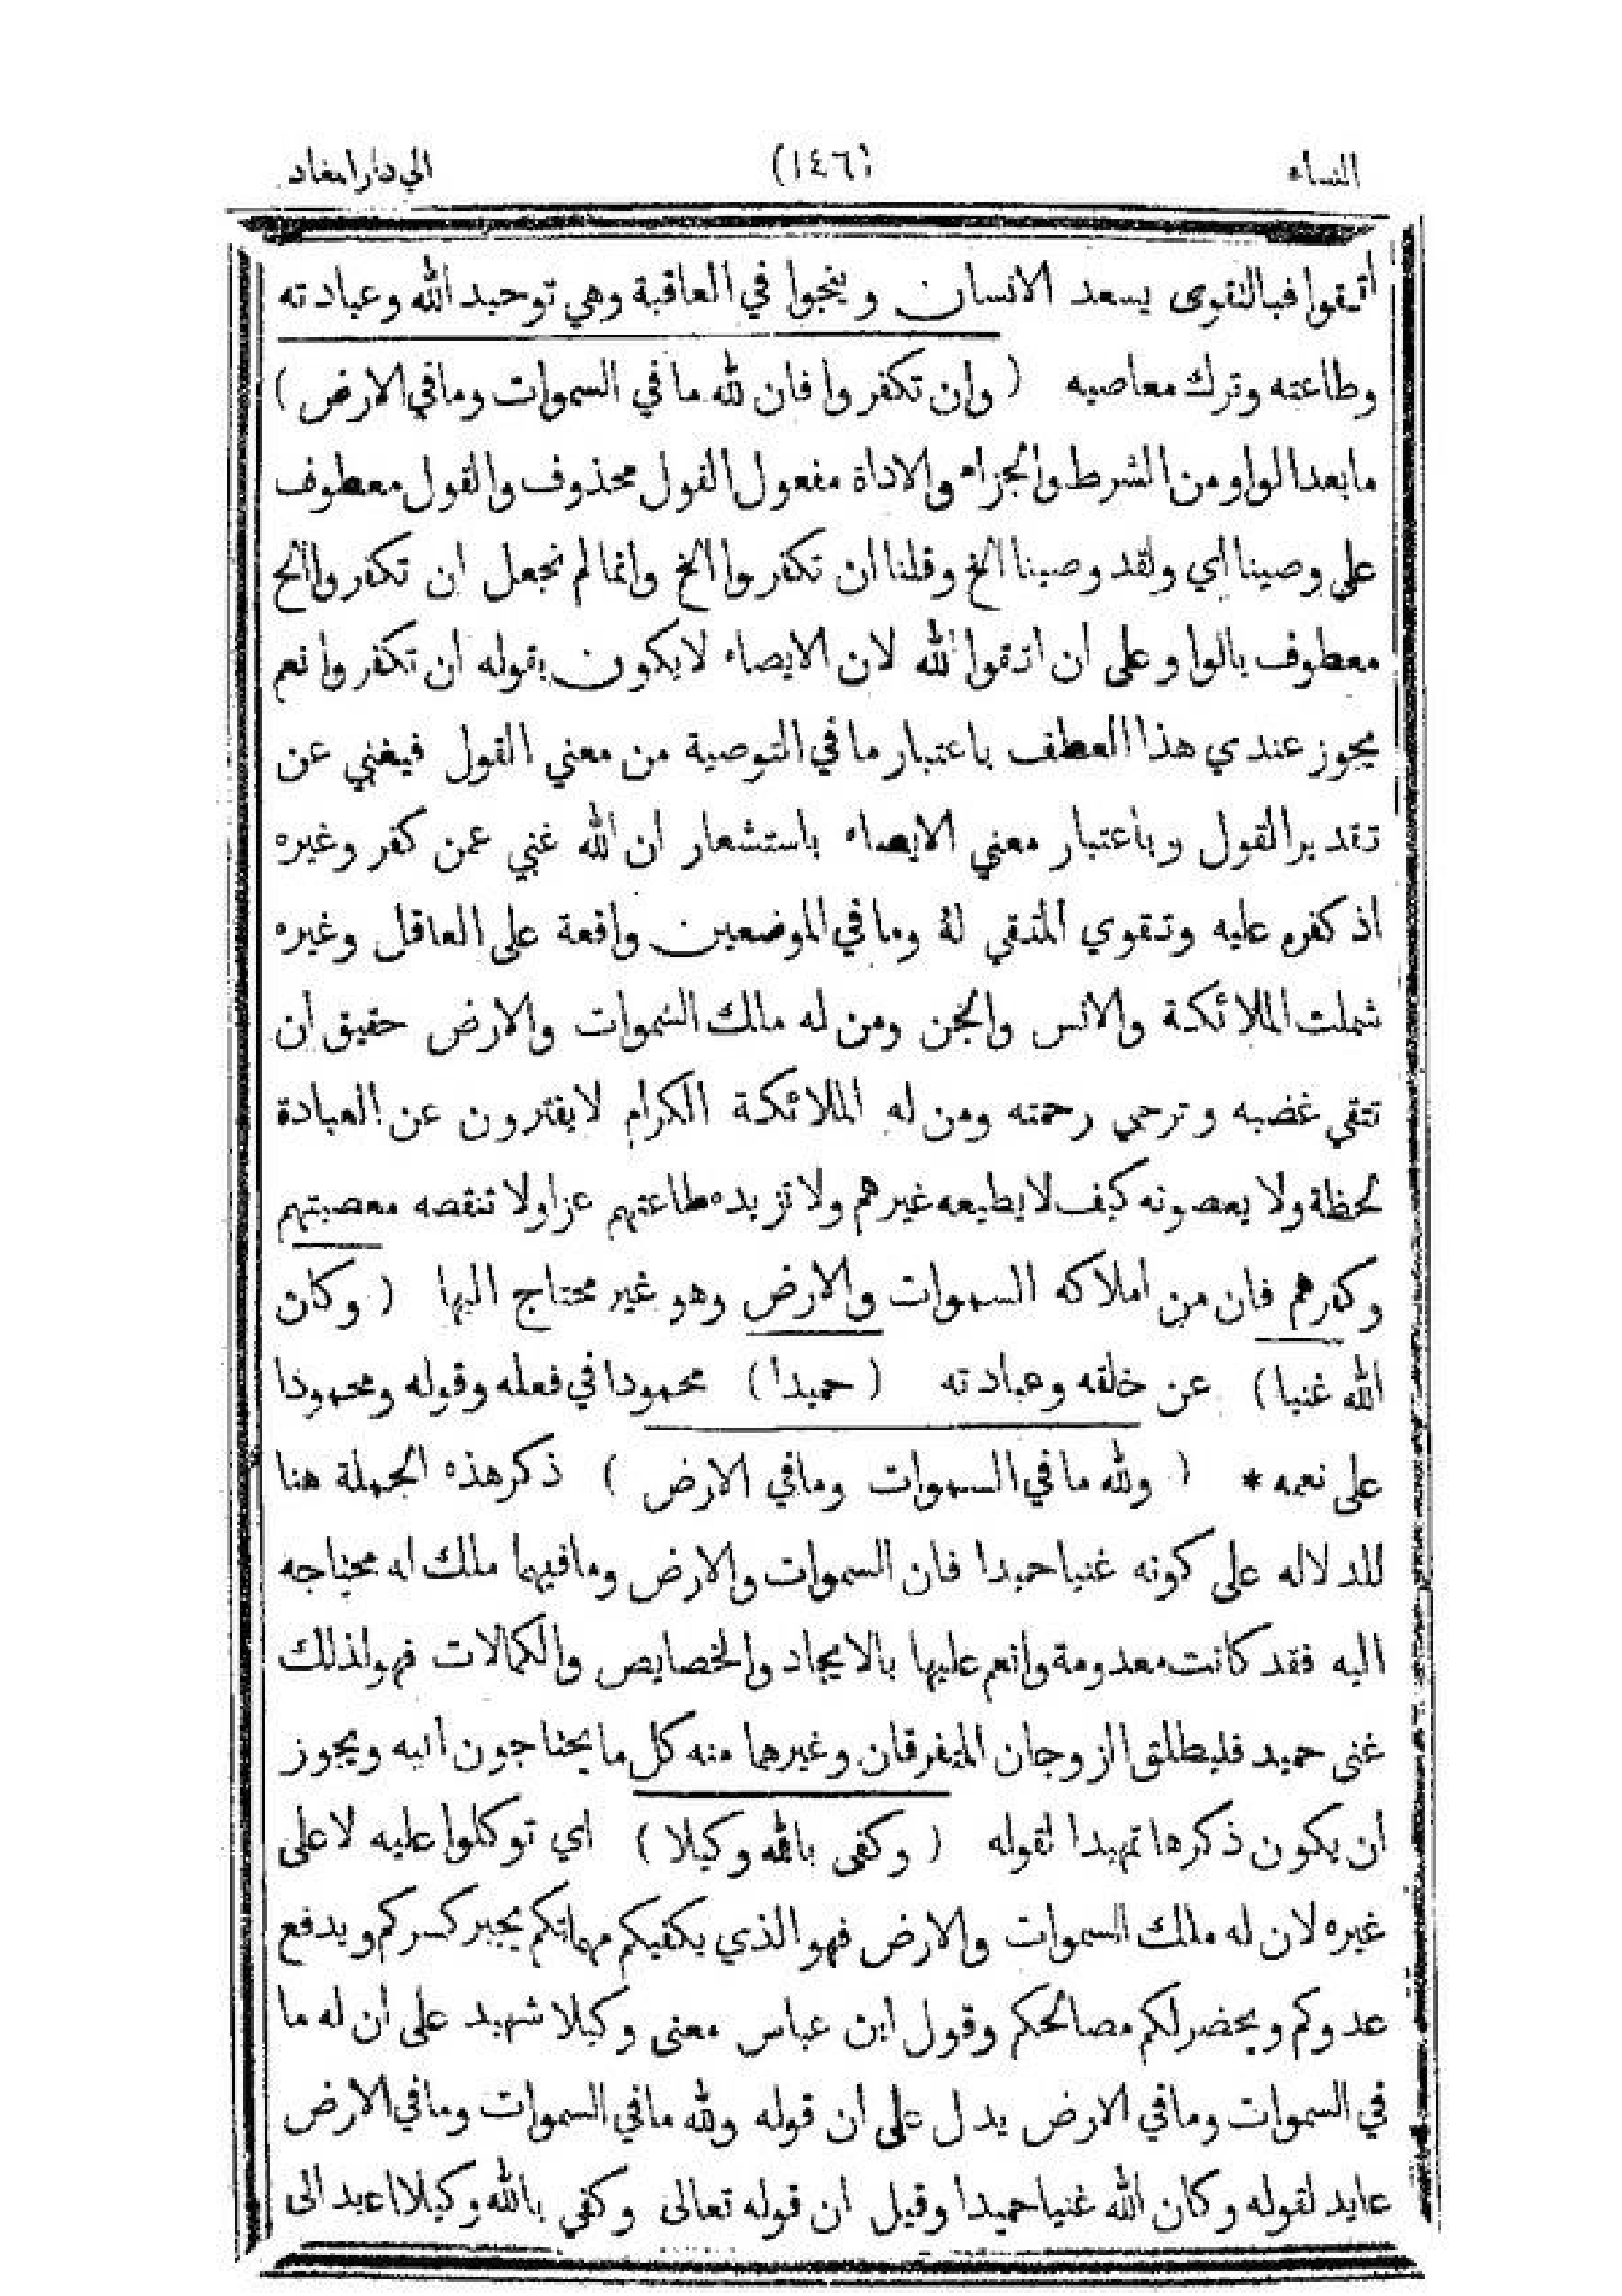 النساء (١٤٦) الى دار المعاد
اتقوا فبالتقوى يسعد الانسان وينجوا في العاقبة وهي توحيد الله وعبادته
وطاعته وترك معاصيه ( وان تكفروا فان لله ما في السموات وما في الارض )
ما بعد الواو من الشرط والجزاء والاداة مفعول القول محذوف والقول معطوف
على وصينا اي ولقد وصينا الخ وقلنا ان تكفروا الخ وانما لم نجعل ان تكفروا الخ
معطوف بالواو على ان اتقوا الله لان الايصاء لا يكون بقوله ان تكفروا نعم
يجوز عندي هذا العطف باعتبار ما في التوصية من معني القول فيغني عن
تقدير القول وباعتبار معني الايصاء باستشعار ان الله غني عمن كفر وغيره
اذ كفره عليه وتقوي المتقي له وما في الموضعين واقعة على العاقل وغيره
شملت الملائكة والانس والجن ومن له ملك السموات والارض حقيق ان
تتقي غضبه وترجي رحمته ومن له الملائكة الكرام لا يفترون عن العبادة
لحظة ولا يعصونه كيف لا يطيعه غيرهم ولا تزيده طاعتهم عزا ولا تنقصه معصيتهم
وكفرهم فان من املاكه السموات والارض وهو غير محتاج اليها ( وكان
الله غنيا ) عن خلقه وعبادته ( حميدا ) محمودا في فعله وقوله ومحمودا
على نعمه * ( ولله ما في السموات وما في الارض ) ذكر هذه الجملة هنا
للدلاله على كونه غنيا حميدا فان السموات والارض وما فيهما ملك له محتاجه
اليه فقد كانت معدومة وانعم عليها بالايجاد والخصايص والكمالات فهو لذلك
غنى حميد فليطلق الزوجان المتفرقان وغيرهما منه كل ما يحتاجون اليه ويجوز
ان يكون ذكرها تمهيدا لقوله ( وكفى بالله وكيلا ) اي توكلوا عليه لا على
غيره لان له ملك السموات والارض فهو الذي يكفيكم مهماتكم يجبر كسركم ويدفع
عدوكم ويحضر لكم مصالحكم وقول ابن عباس معنى وكيلا شهيد على ان له ما
في السموات وما في الارض يدل على ان قوله ولله ما في السموات وما في الارض
عايد لقوله وكان الله غنيا حميدا وقيل ان قوله تعالى وكفي بالله وكيلا اعيد الى